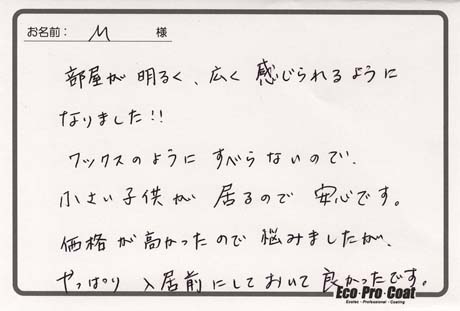 お名前： M 様
部屋が明るく、広く感じられるように
なりました!!
ワックスのようにすべらないので、
小さい子供が居るので安心です。
価格が高かったので悩みましたが、
やっぱり入居前にしておいて良かったです。
Eco・Pro・Coat
Ecolex・Professional・Coating